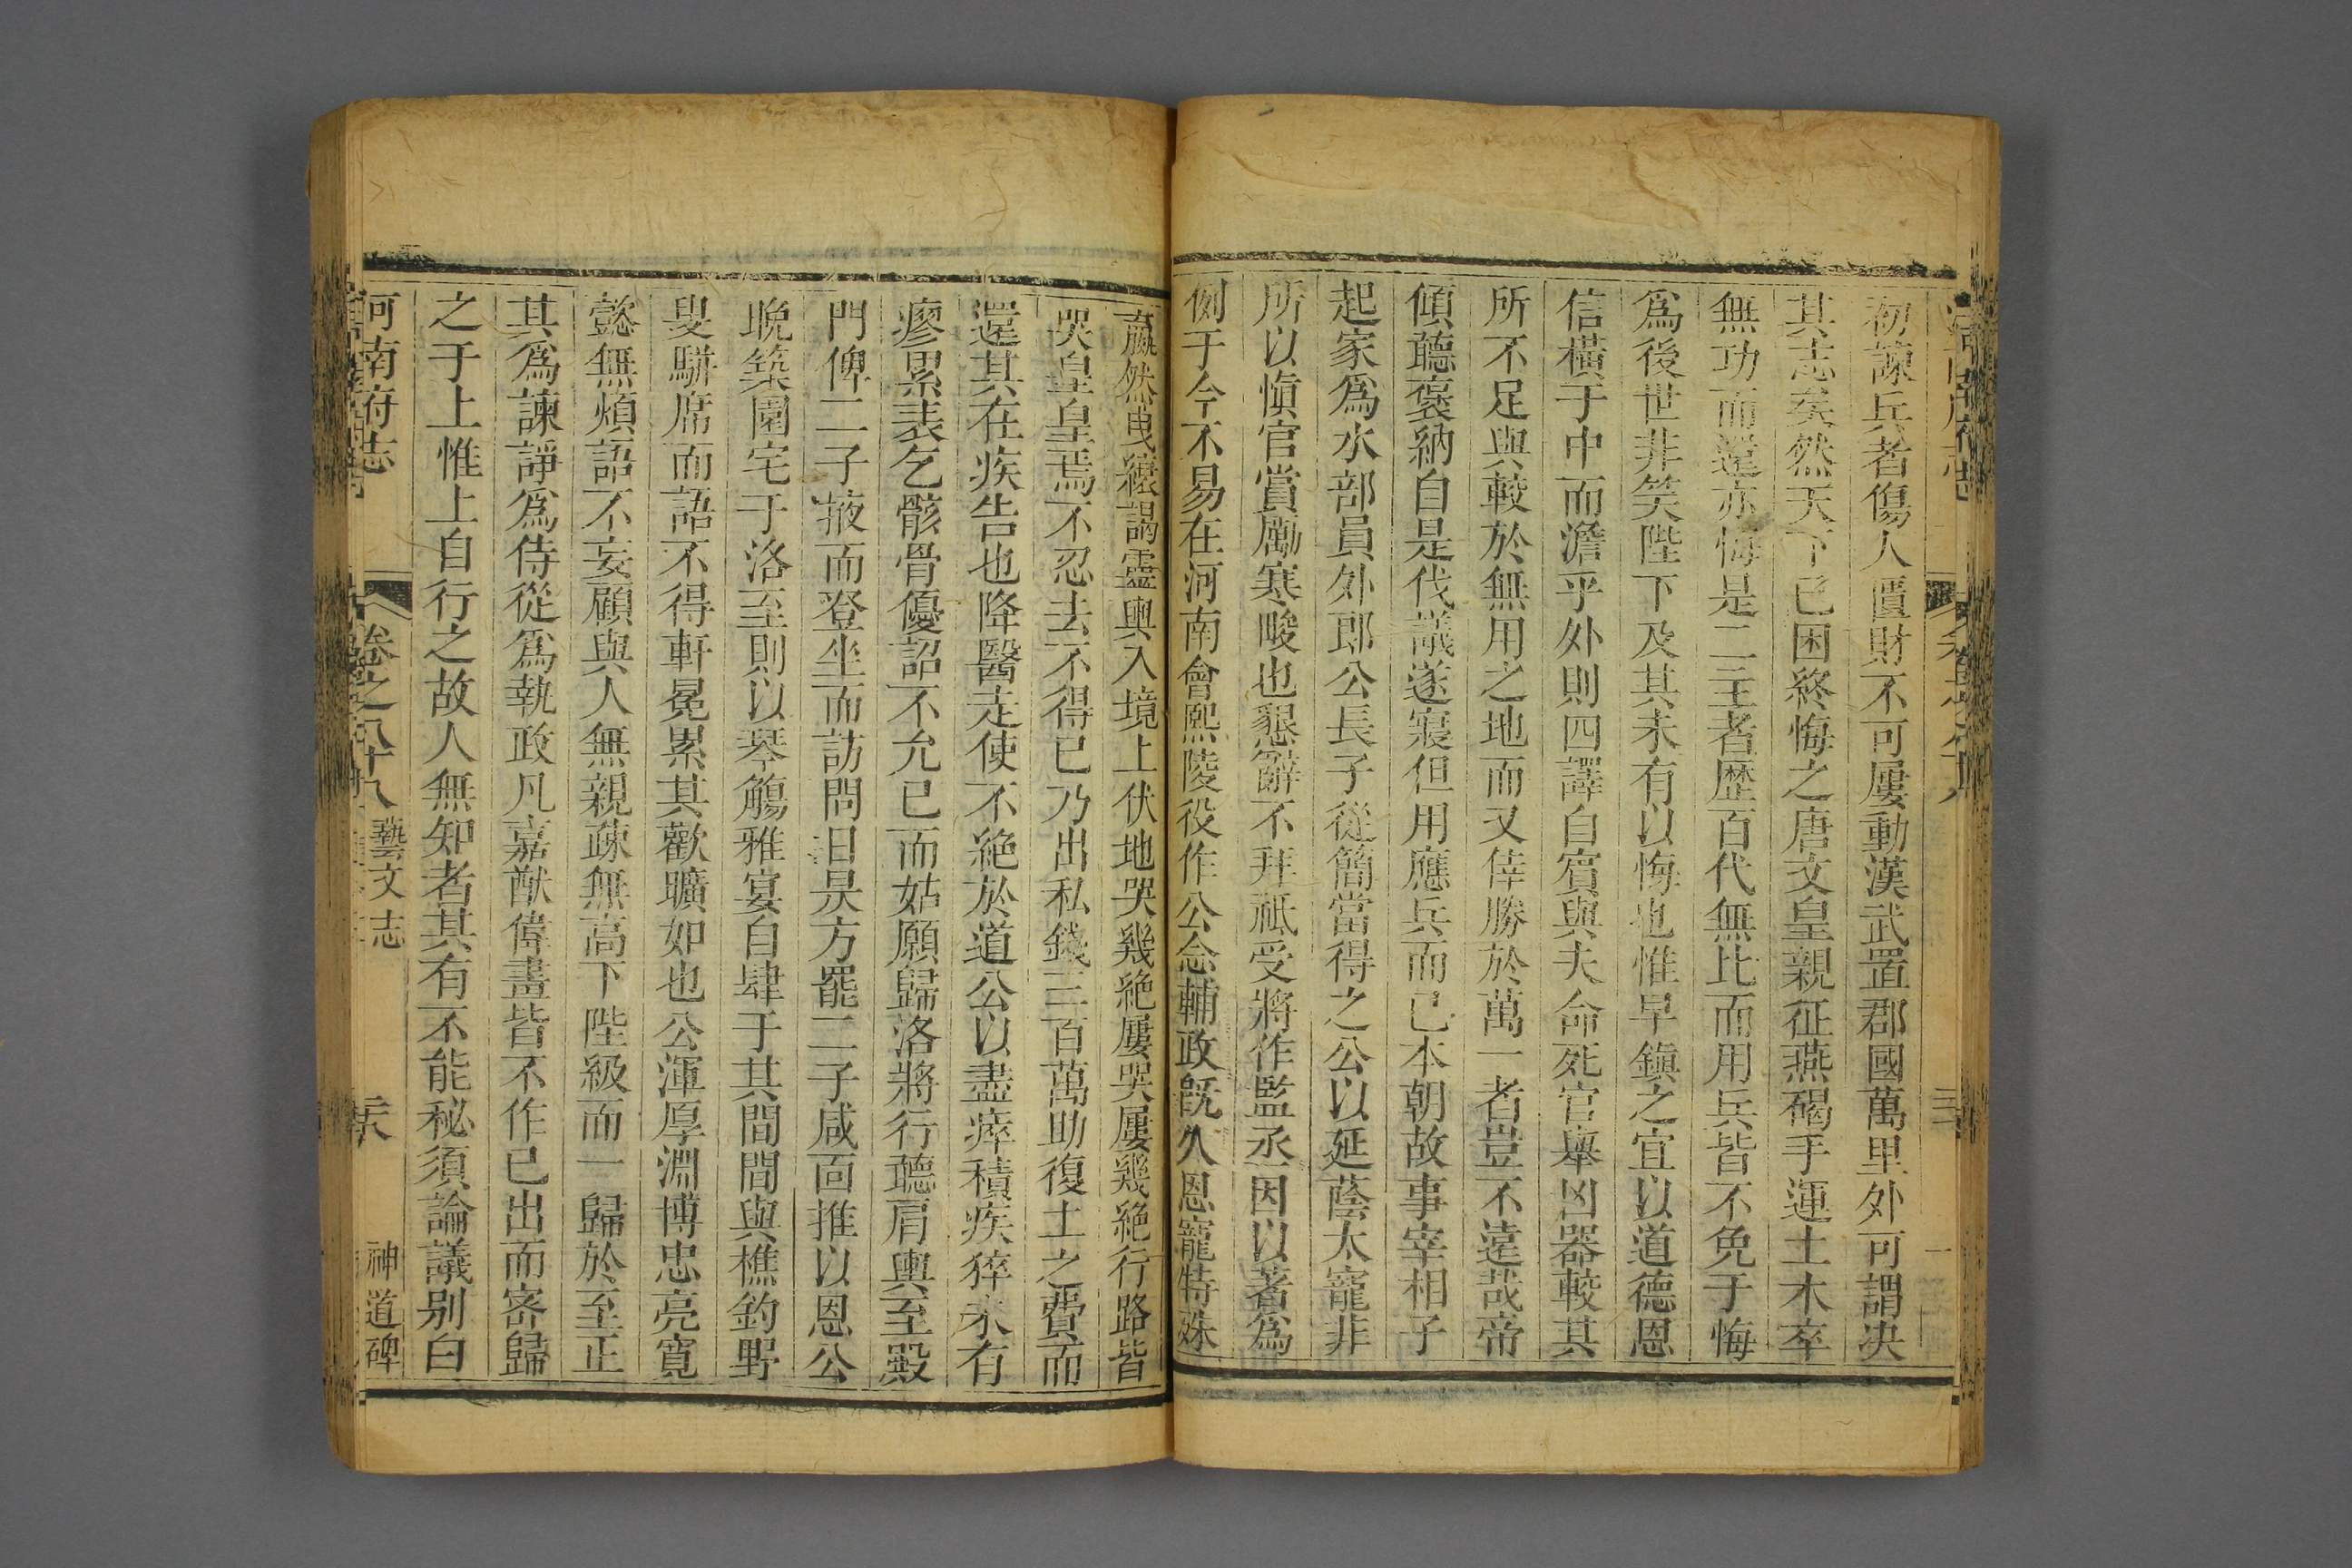 初諫兵者傷人匱財不可屢動漢武置郡國萬里外可謂決
其志矣然天下已困終悔之唐文皇親征燕碣手運土木卒
無功而還亦悔是二主者歷百代無比而用兵皆不免于悔
爲後世非笑陛下及其未有以悔也惟早鎭之宜以道德恩
信橫于中而澹乎外則四譯自賓與夫命死官舉凶器較其
所不足與較於無用之地而又倖勝於萬一者豈不遠哉帝
傾聽褒納自是伐議遂寢但用應兵而已本朝故事宰相子
起家爲水部員外郎公長子從簡當得之公以延蔭太寵非
所以愼官賞勵寒畯也懇辭不拜祗受將作監丞因以著爲
例于今不易在河南會熙陵役作公念輔政旣久恩寵特殊
羸然曳縗謁靈輿入境上伏地哭幾絶屢哭屢幾絶行路皆
哭皇皇焉不忍去不得已乃出私錢三百萬助復土之費而
還其在疾告也降醫走使不絶於道公以盡瘁積疾猝未有
瘳累表乞骸骨優詔不允已而姑願歸洛將行聽肩輿至殿
門俾二子掖而登坐而訪問日昃方罷二子咸面推以恩公
晩築園宅于洛至則以琴觴雅宴自肆于其間間與樵釣野
叟駢席而語不得軒冕累其歡曠如也公渾厚淵博忠亮寬
懿無煩語不妄顧與人無親疎無高下陛級而一歸於至正
其爲諫諍爲侍從爲執政凡嘉猷偉畫皆不作已出而密歸
之于上惟上自行之故人無知者其有不能秘須論議别白
河南府志
卷之八十八 藝文志
神道碑